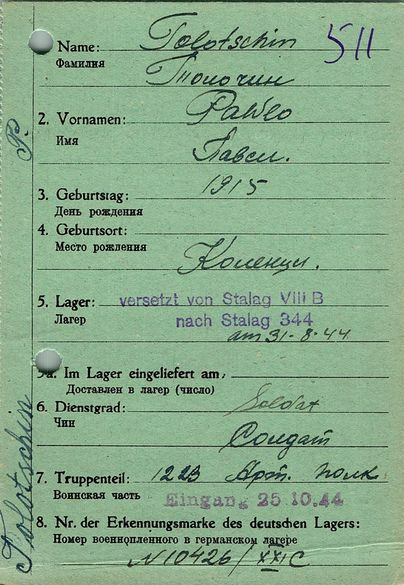 511
Name: Tolotschin
Фамилия
Толочин
2. Vornamen: Pawlo
Имя
Павел.
3. Geburtstag: 1915
День рождения
4. Geburtsort:
Место рождения
5. Lager: versetzt von Stalag VIII B
Лагер nach Stalag 344
am 31-8-44
5a. Im Lager eingeliefert am,
Доставлен в лагер (число)
6. Dienstgrad: Soldat
Чин
Солдат
7. Truppenteil: 1223 Арт. полк
Воинская часть Eingang 25.10.44
8. Nr. der Erkennungsmarke des deutschen Lagers:
Номер военнопленного в германском лагере
N 10426/XXI C
Tolotschin P.